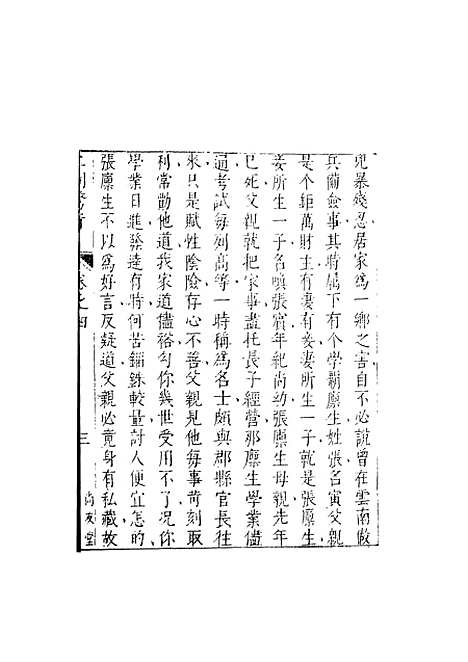 兇暴殘忍居家為一鄉之害自不必說曾在雲南做
兵備僉事其時属下有个學霸廪生姓張名寅父親
是个鉅萬財主有妻有妾妻所生一子就是張廪生
妾所生一子名喚張賓年紀尚幼張廪生母親先年
已死父親就把家事盡托長子經營那廪生學業儘
通考試每列高等一時稱為名士頗與郡縣官長往
來只是賦性陰險存心不善父親見他每事苛刻取
利常勸他道我家道儘裕勾你幾世受用不了况你
學業日進發達有時何苦錙銖較量討人便宜怎的
張廪生不以為好言反疑道父親必竟身有私藏故
卷之四
三
尚友堂